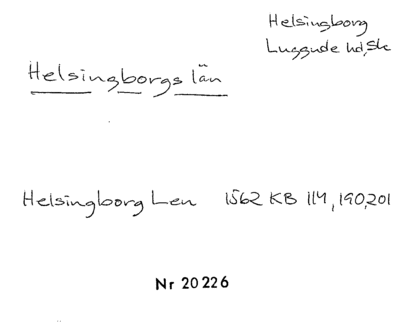 Helsingborg
Luggude hd, Sk
Helsingborgs län
Helsingborg Len 1562 KB 114, 190, 201
Nr 20 226